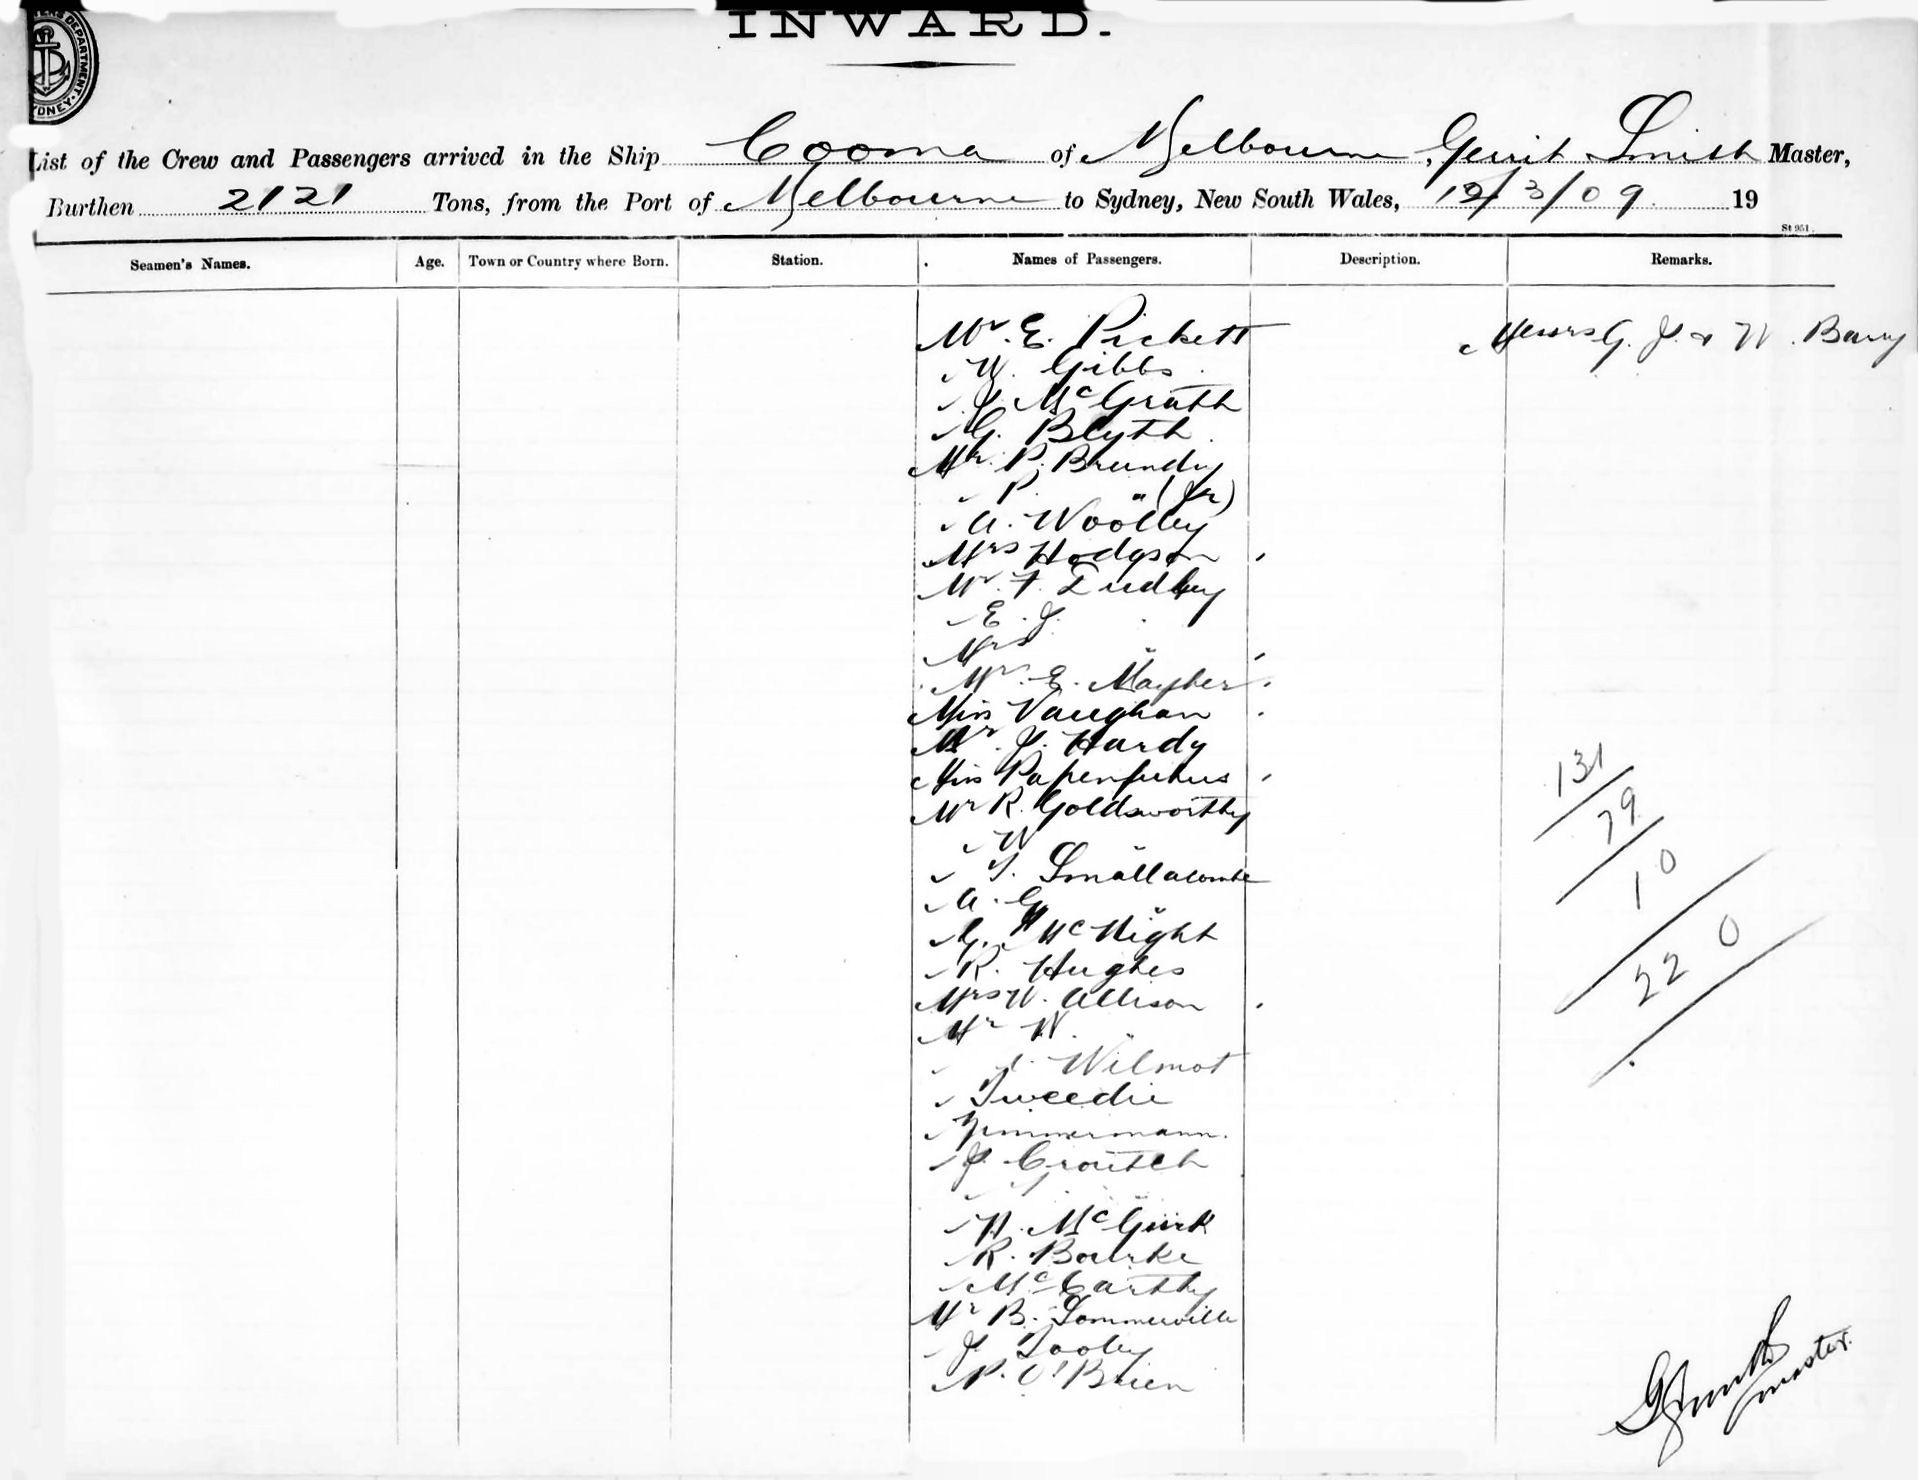 INWARD.
List of the Crew and Passengers arrived in the Ship Cooma of Melbourne, Gerrit Smith Master,
Burthen 2121 Tons, from the Port of Melbourne to Sydney, New South Wales, 12/3/09 19
St 951.
Seamen's Names. Age. Town or Country where Born. Station. Names of Passengers. Description. Remarks.
Mr. E. Pickett Messrs G. J. & W. Barry
W. Gibbs
J. McGrath
G. Blyth
Mr. P. Brundy
P. " (Jr)
A. Woolley
Mrs Hodgson
Mr. F. Dudley
E. J.
Mrs "
Mr. E. Mayher
Miss Vaughan
Mr. J. Hardy
Miss Papenfuhus
Mr R. Goldsworthy
W "
T. Smallacombe
A. G. "
G. McNight
R. Hughes
Mrs W. Allison
Mr W. "
J. Wilmot
Tweedie
Zimmermann
J. Croutch
"
H. McGurk
R. Bourke
McCarthy
Mr B. Sommerville
J. Tooley
P. O'Brien
131
79
10
220
G Smith
master.